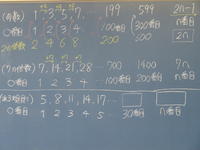 (奇数) 1,3,5,7,… 199 599 2n-1
○番目 1 2 3 4 100番目 300番目 n番目
2の倍数 2 4 6 8 200 600 2n
(7の倍数) 7,14,21,28… 700 1400 7n
○番目 1 2 3 4 100番目 200番目 n番目
5,8,11,14,17…
○番目 1 2 3 4 5… 30番目 n番目